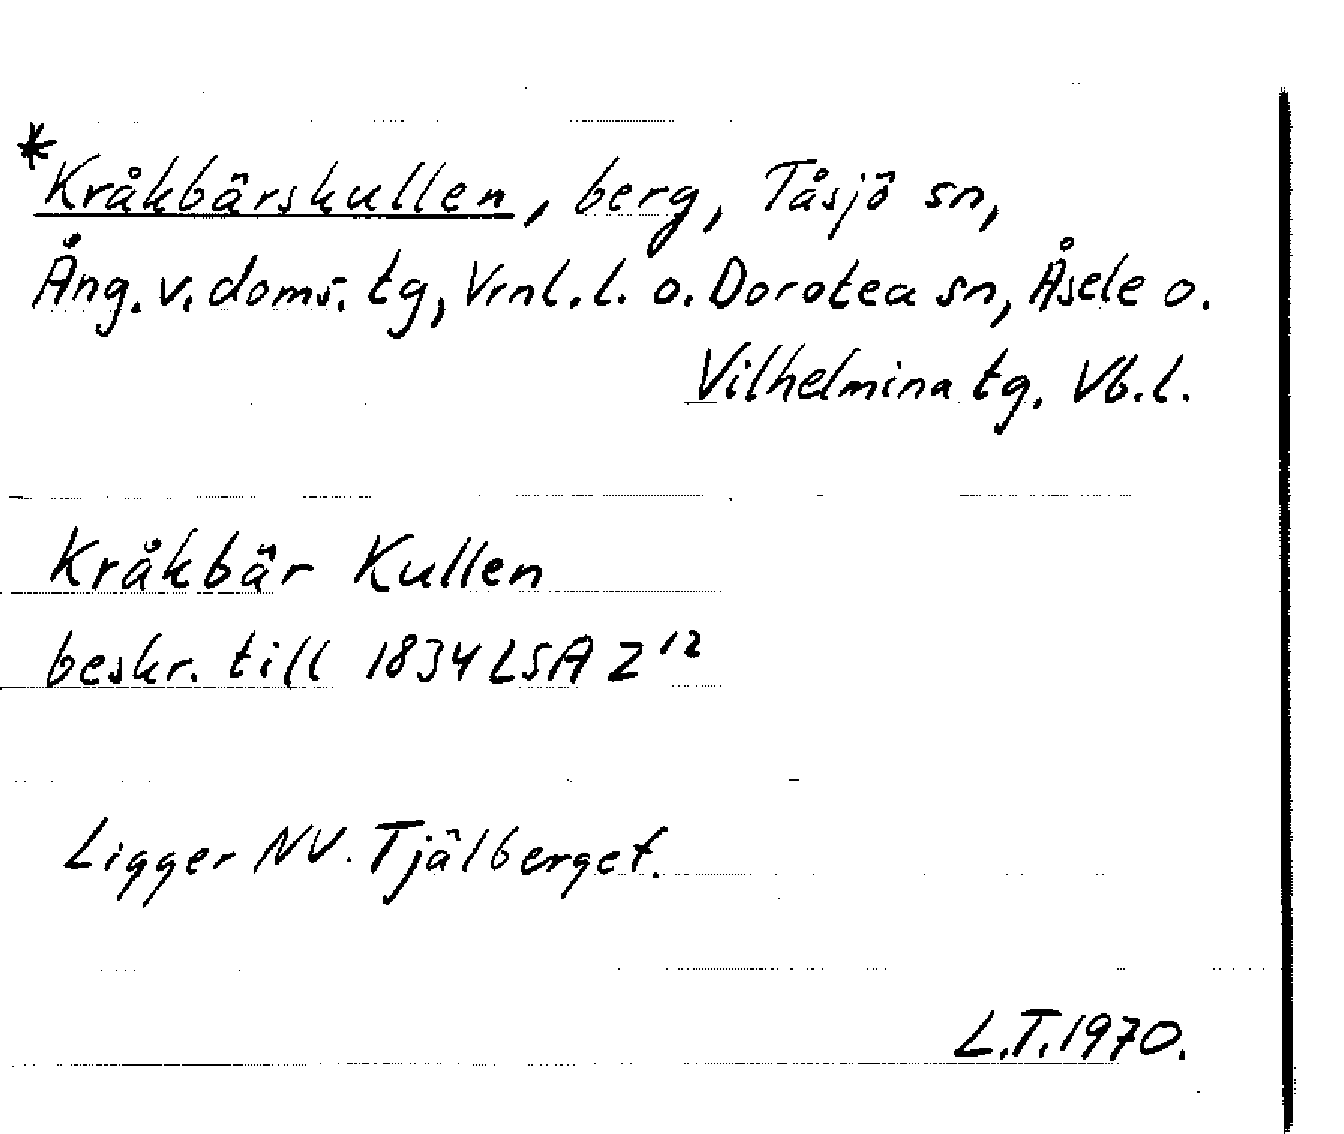 *Kråkbärskullen, berg, Tåsjö sn,
Ång. v. doms. tg, Vrnl. l. o. Dorotea sn, Åsele o.
Vilhelmina tg. Vb. l.
Kråkbär Kullen
beskr. till 1834 LSA Z¹²
Ligger NV. Tjälberget.
L.T. 1970.